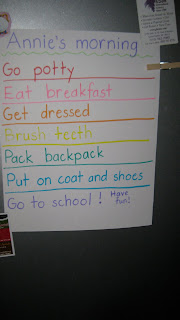 Annie's morning
Go potty
Eat breakfast
Get dressed
Brush teeth
Pack backpack
Put on coat and shoes
Go to school! Have
fun!